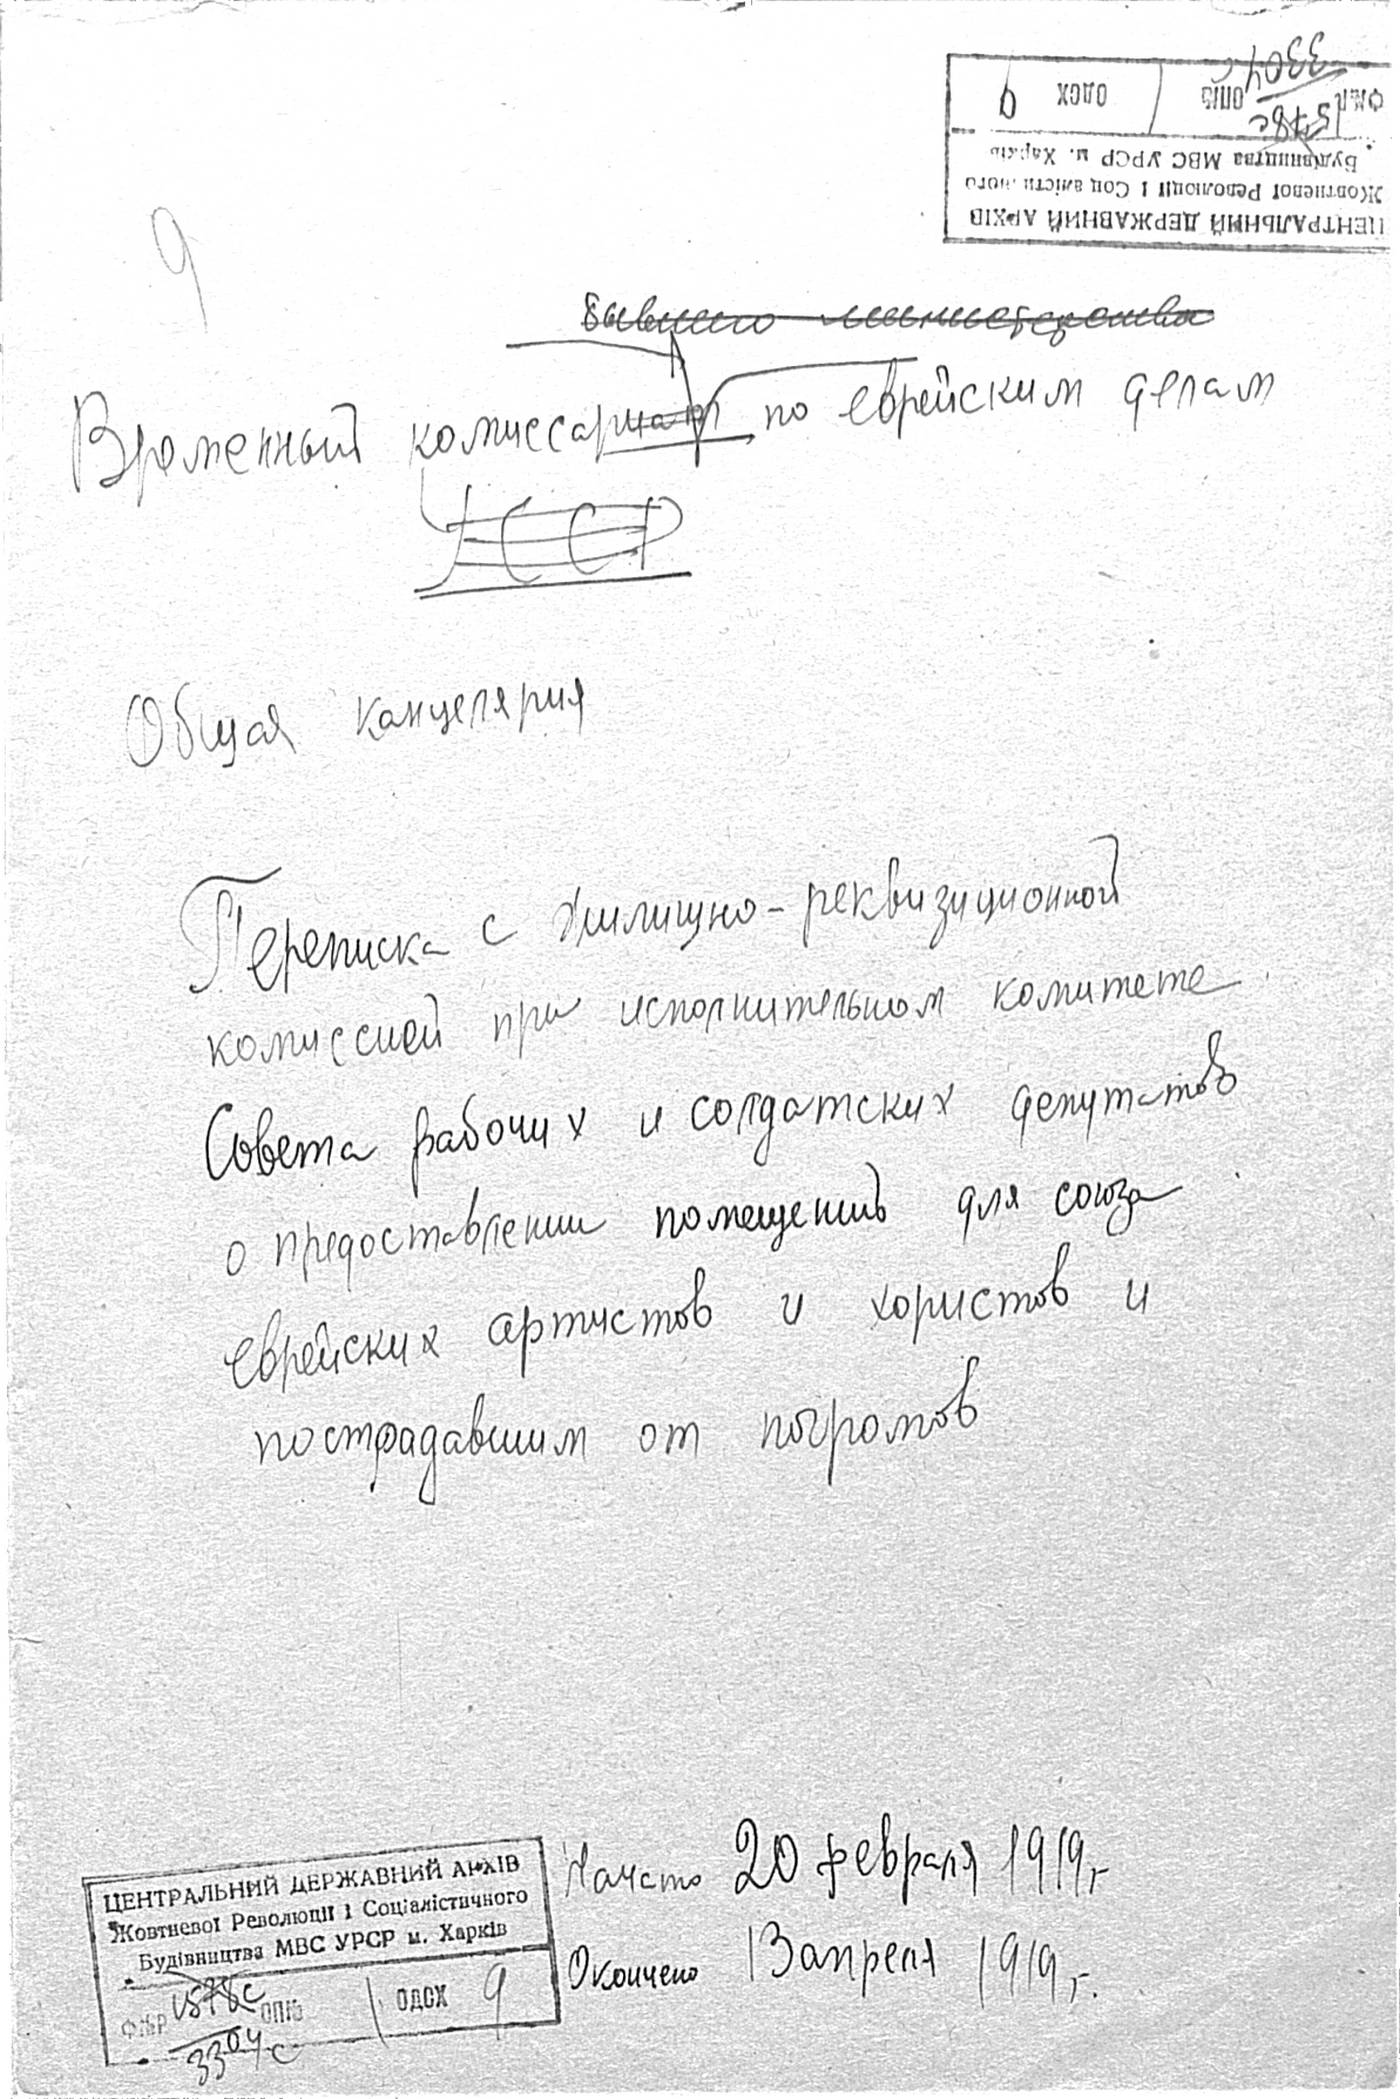 3304с
ФЛР 1578с ОПІБ 1 ОДСХ 9
ЦЕНТРАЛЬНИЙ ДЕРЖАВНИЙ АРХІВ
Жовтневої Революції і Соціалістичного
Будівництва МВС УРСР м. Харків
9
Бывшего министерства
Временный комиссариат по еврейским делам
УССР
Общая канцелярия
Переписка с жилищно-реквизиционной
комиссией при исполнительном комитете
Совета рабочих и солдатских депутатов
о предоставлении помещений для союза
еврейских артистов и хористов и
пострадавшим от погромов
Начато 20 февраля 1919 г.
Окончено 13 апреля 1919 г.
ЦЕНТРАЛЬНИЙ ДЕРЖАВНИЙ АРХІВ
Жовтневої Революції і Соціалістичного
Будівництва МВС УРСР м. Харків
1578с 1 ОДСХ 9
3304с